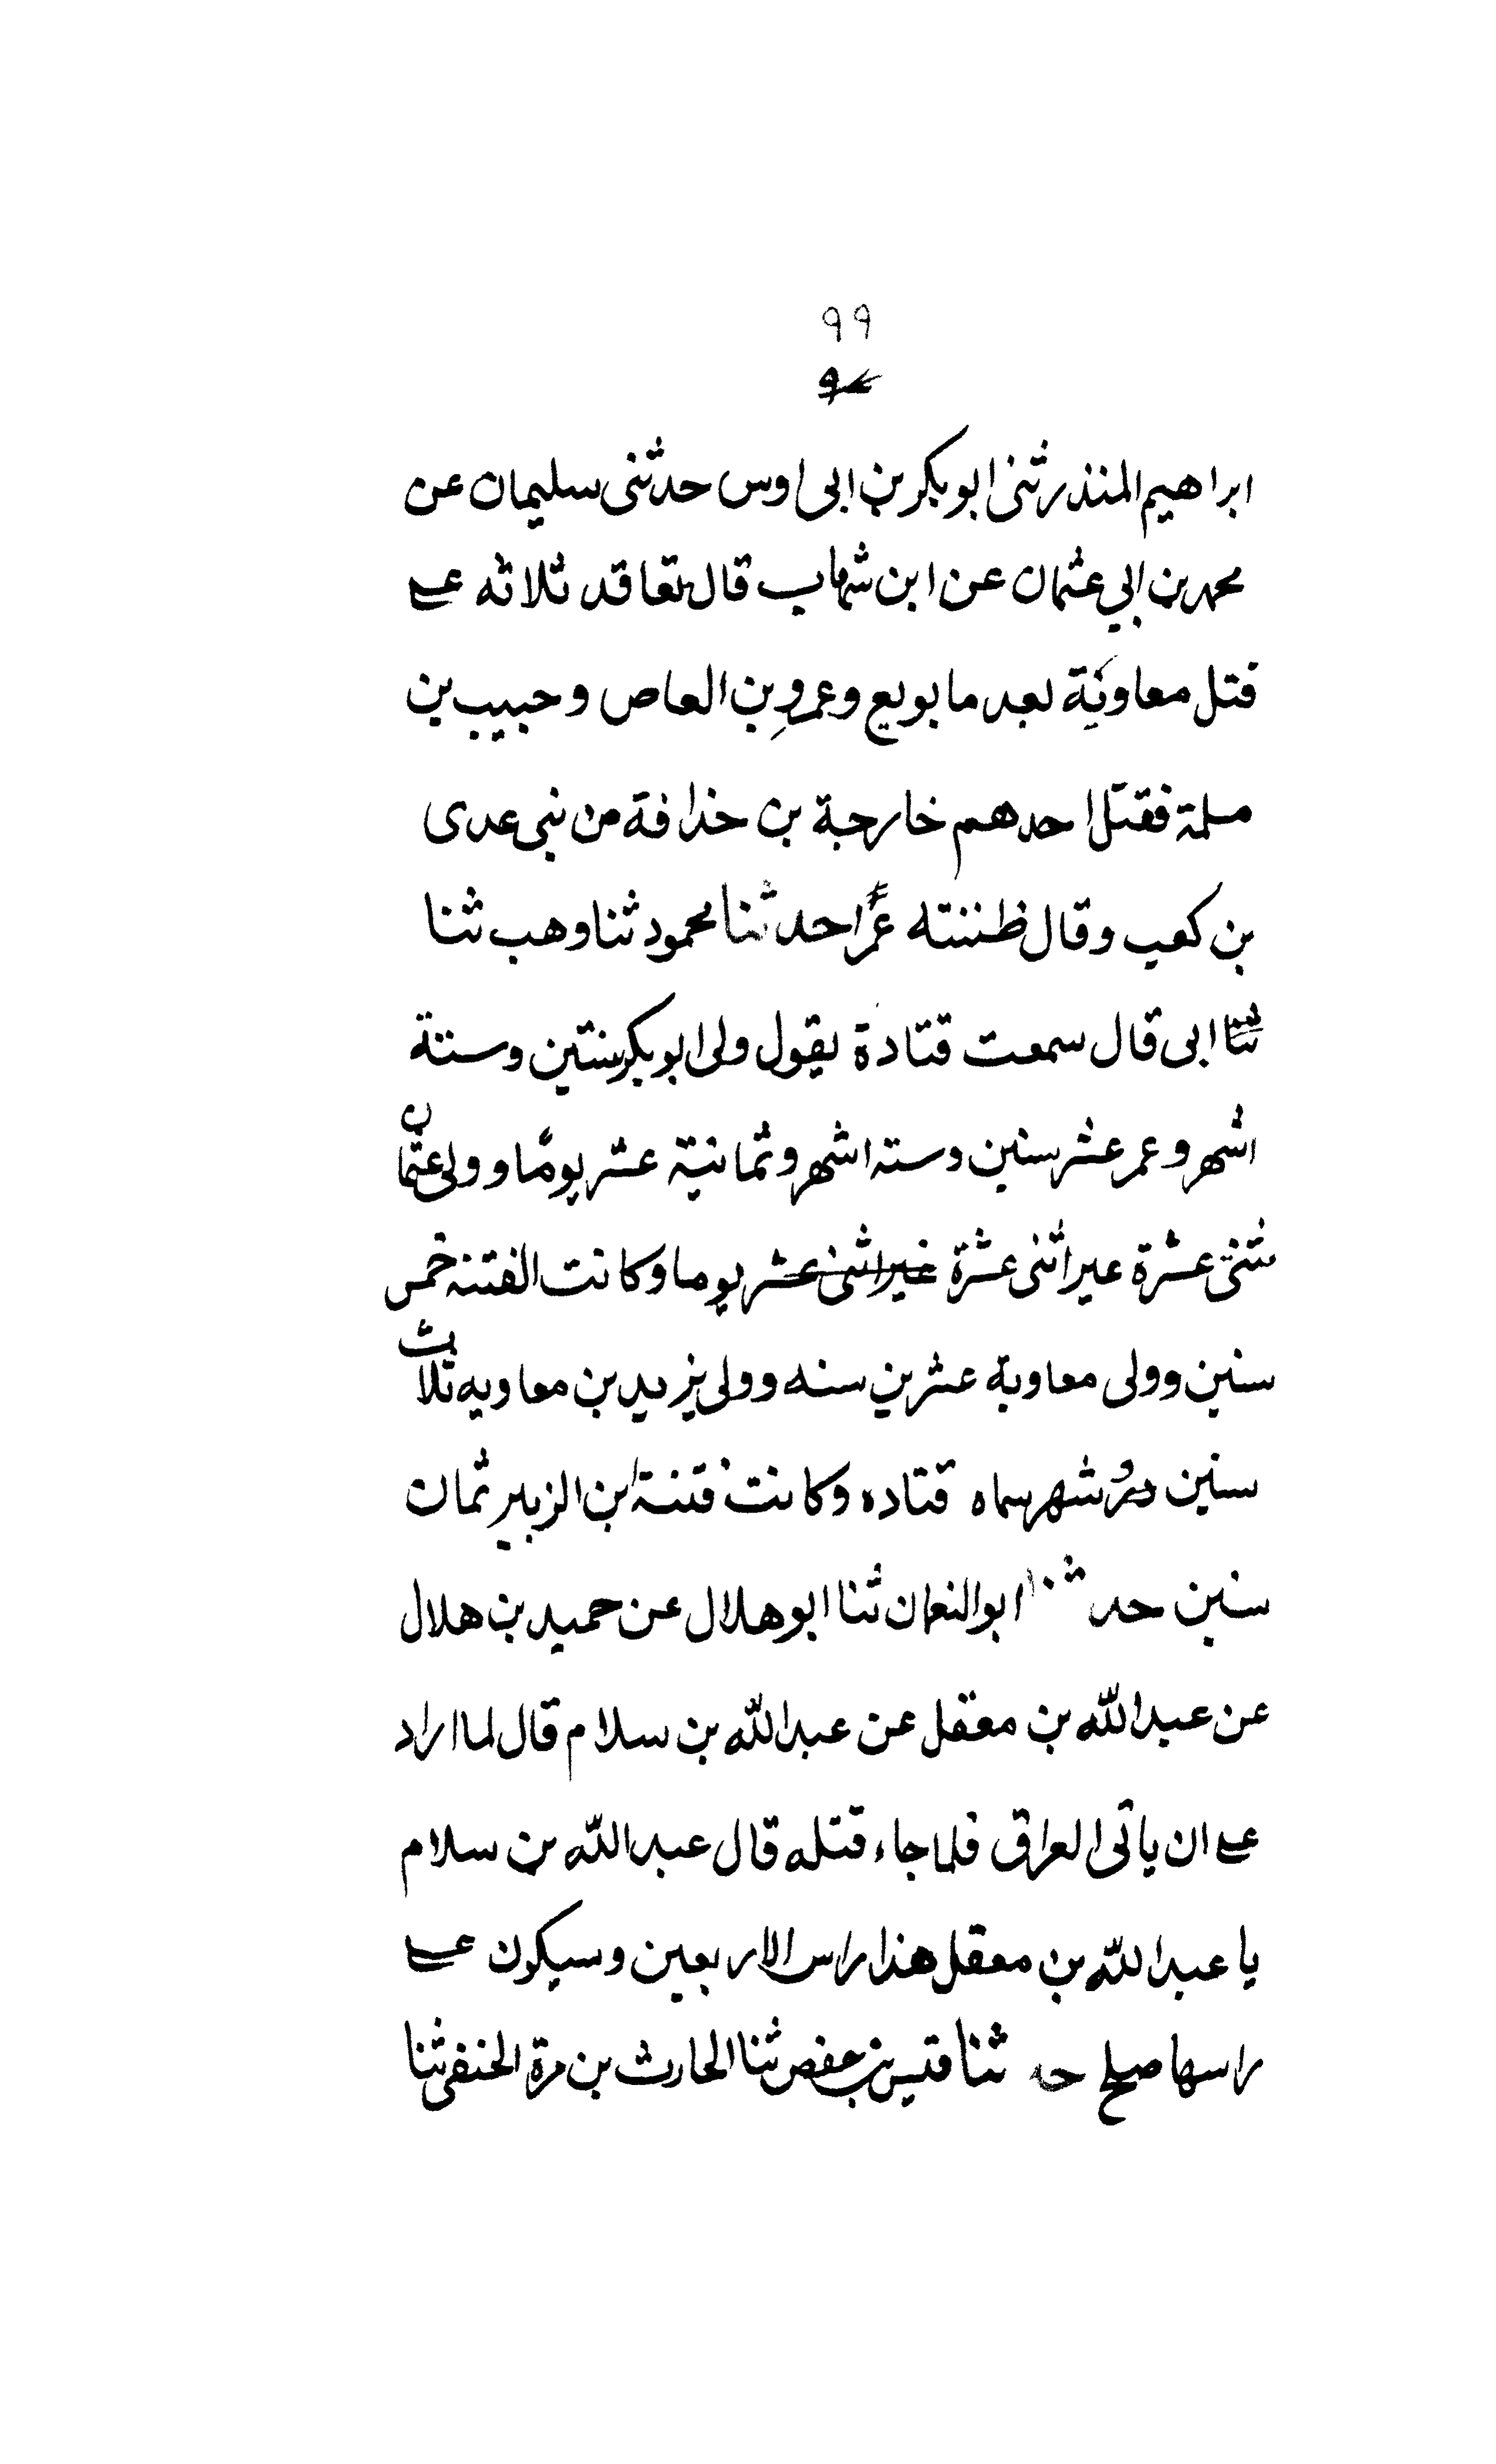 ٩٩
ابراهيم المنذر ثنى ابو بكر بن ابى اوس حدثنى سليمان عن
محمد بن ابي عثمان عن ابن شهاب قال تعاقد ثلاثه على
قتل معاوية بعد ما بويع وعمرو بن العاص وحبيب بن
مسلمة فقتل احدهم خارجة بن خذافة من بنى عدى
بن كعب وقال ظننته عمرًا حدثنا محمود ثنا وهب ثنا
ثنا ابى قال سمعت قتادة يقول ولى ابو بكر سنتين وستة
اشهر وعمر عشر سنين وسته اشهر وثمانية عشر يومًا وولى عثمان
ثنتى عشرة غير اثنى عشرة غير اثنى عشر يوما وكانت الفتنه خمس
سنين وولى معاوية عشرين سنه وولى يزيد بن معاويه ثلاث
سنين وشهر سماه قتاده وكانت فتنة ابن الزبير ثمان
سنين حدثنا ابو النعمان ثنا ابو هلال عن حميد بن هلال
عن عبد الله بن معقل عن عبد الله بن سلام قال لما اراد
على ان ياتى العراق فلما جاء قتله قال عبد الله بن سلام
يا عبد الله بن معقل هذا راس الاربعين وسيكون على
راسها صلح حد ثنا قيس بن حفص ثنا الحارث بن مرة الحنفى ثنا